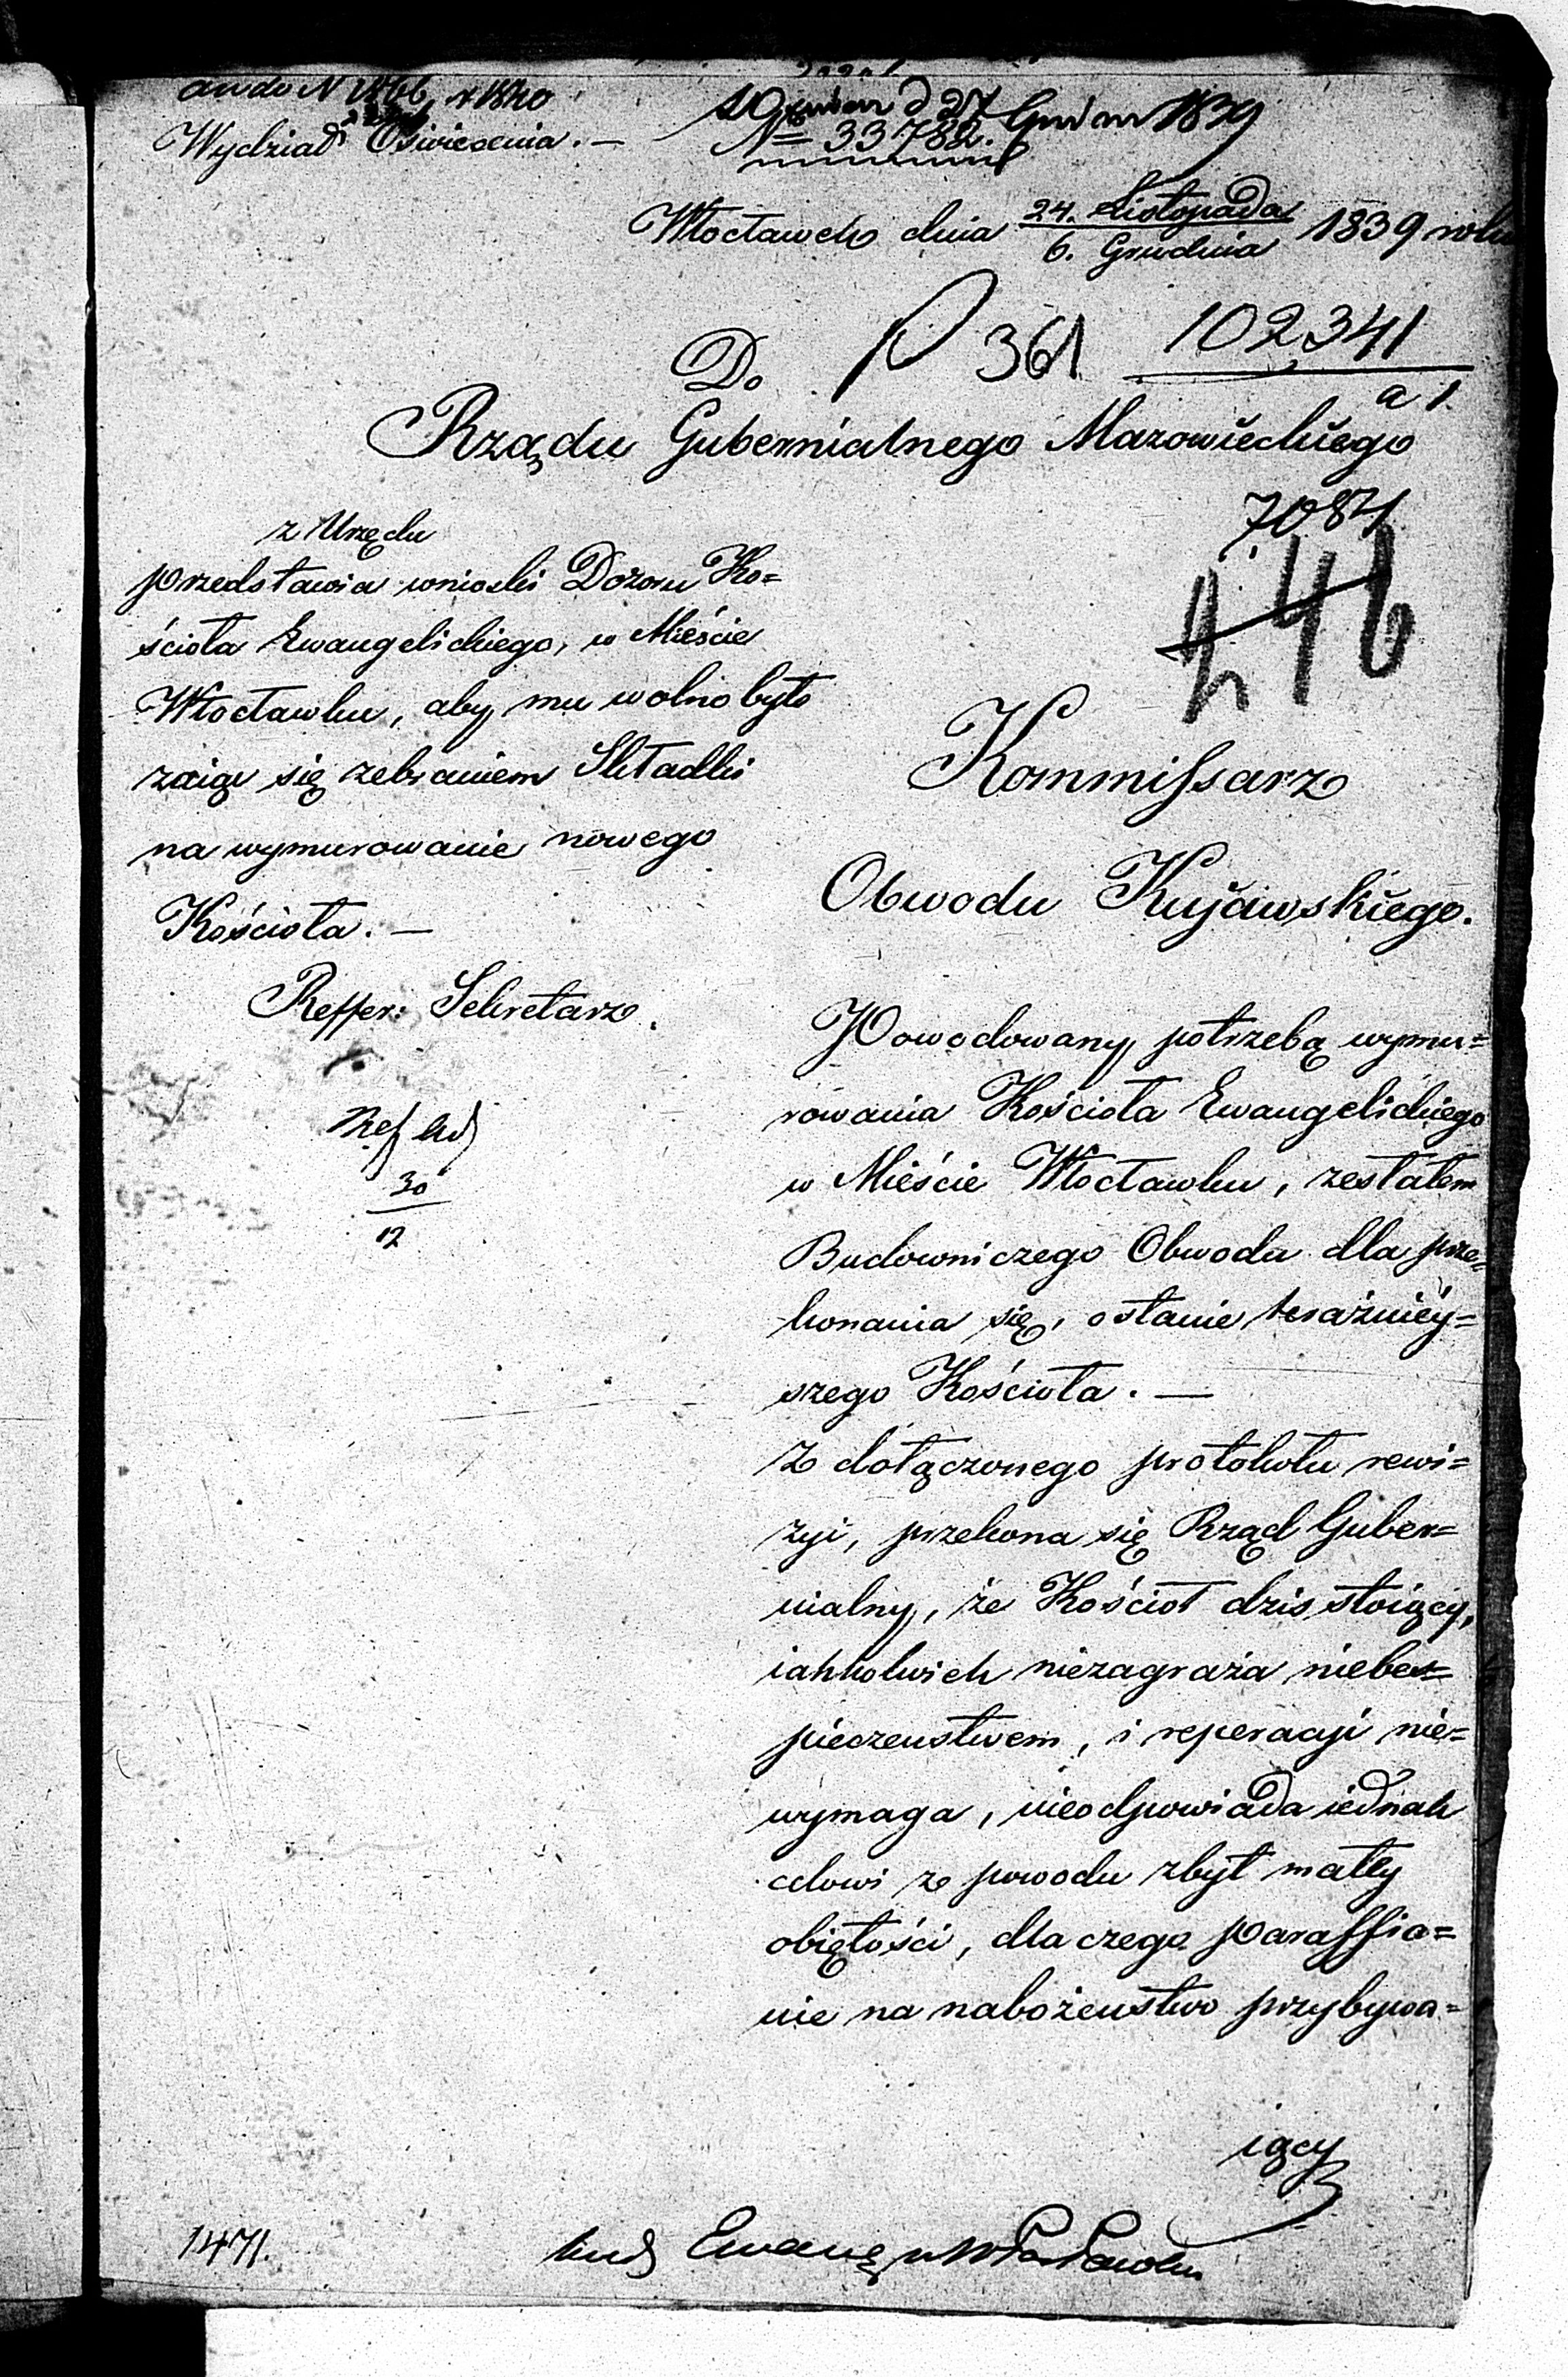 Wydział Oświecenia. —
№ 33782.
Grudnia 1839
Włocławek dnia 24. Listopada / 6. Grudnia 1839 roku
361 102341
Do
a 1.
Rządu Gubernialnego Mazowieckiego
7084
z Urzędu
przedstawia wnioski Dozoru Ko=
ścioła Ewangelickiego, w Mieście
Włocławku, aby mu wolno było
zaiąć się zebraniem Składki
na wymurowanie nowego
Kościoła. —
Reffer: Sekretarz.
30
12
246
Kommissarz
Obwodu Kujawskiego.
Powodowany potrzebą wymu=
rowania Kościoła Ewangelickiego
w Mieście Włocławku, zesłałem
Budowniczego Obwodu dla prze=
konania się, o stanie teraźniéy=
szego Kościoła. —
Z dołączonego protokołu rewi=
zyi, przekona się Rząd Guber=
nialny, że Kościoł dzis stoiący,
iakkolwiek niezagraża niebez=
pieczeństwem, i reperacyi nie=
wymaga, nieodpowiada iednak
celowi z powodu zbyt małéy
obiętości, dla czego Paraffia=
nie na nabożeństwo przybywa=
iący
1471.
bud Ewang w Włocławku